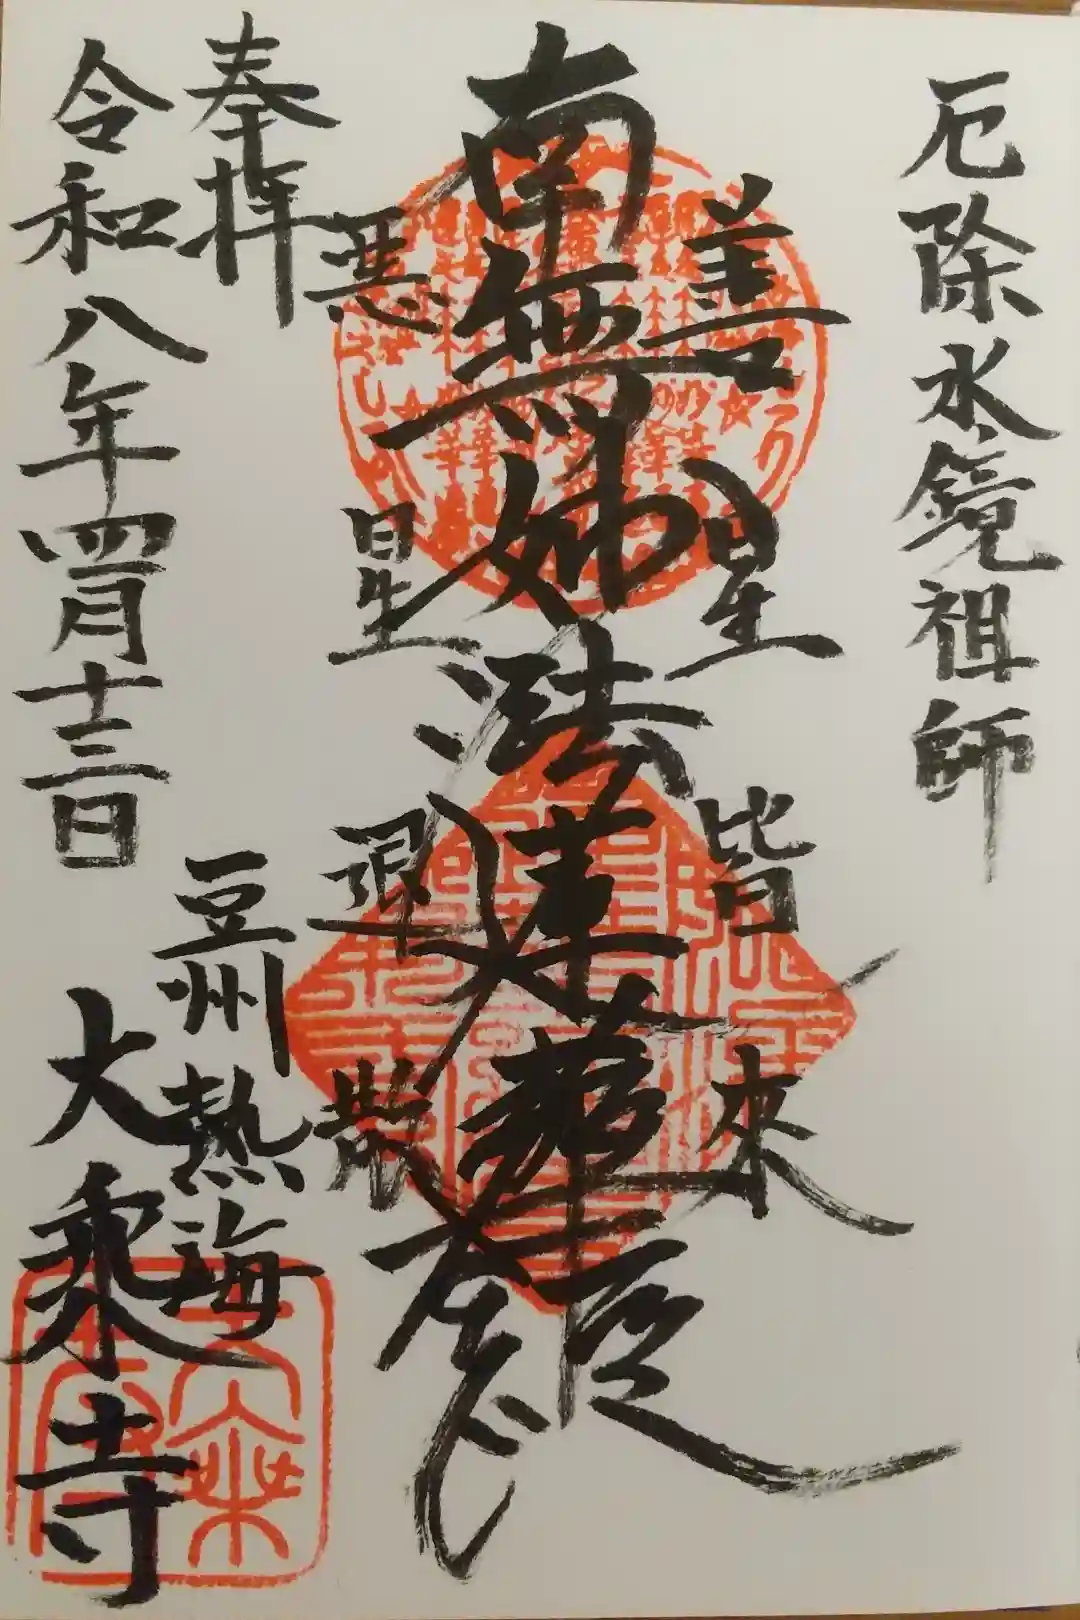 厄除水鏡祖師
善星皆來
南無妙法蓮華経
悪星退散
奉拝
豆州熱海
令和八年四月十三日
大乘寺